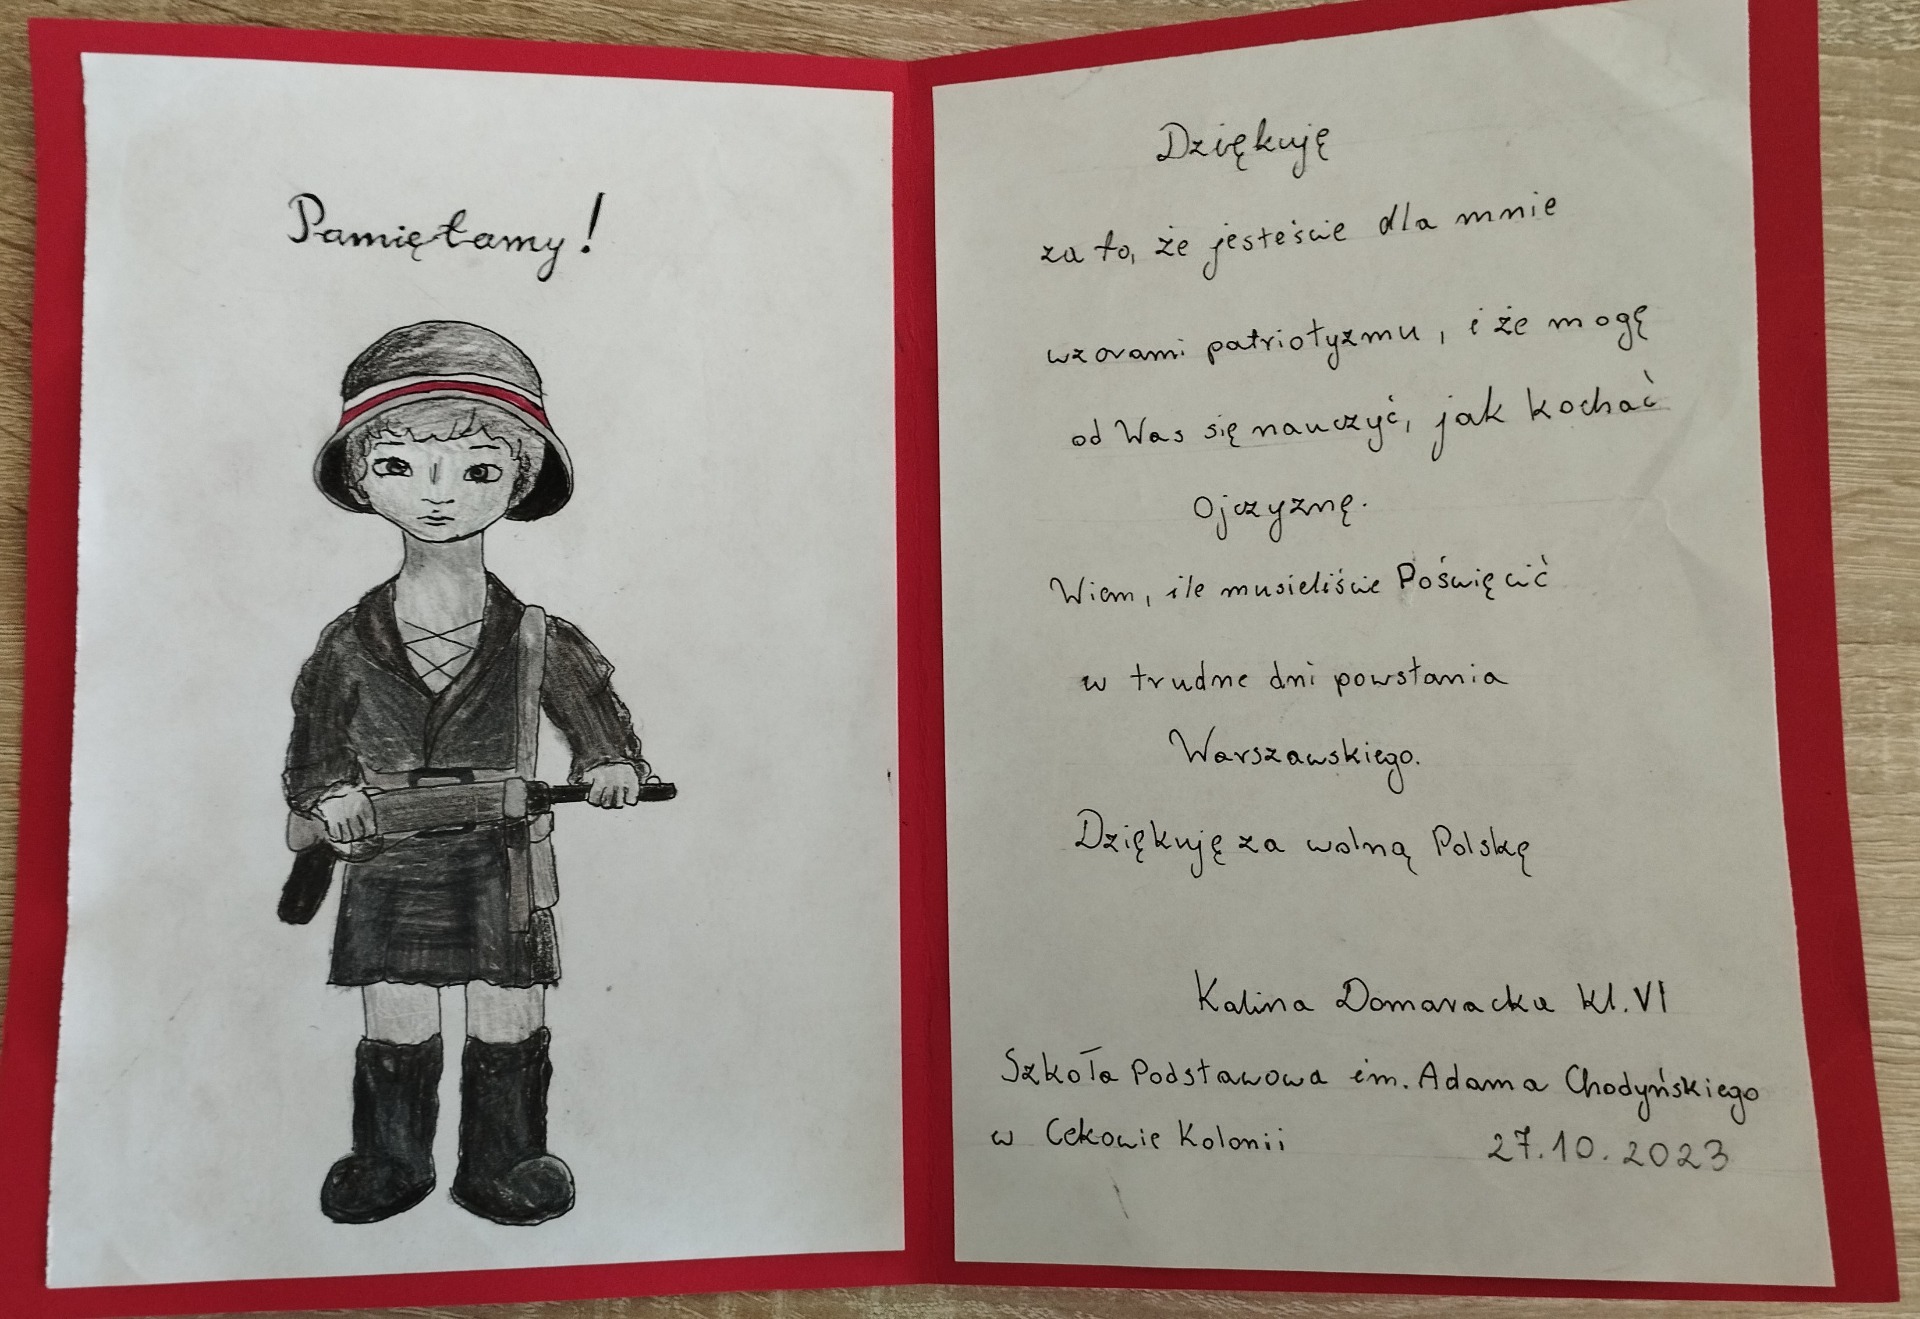 Pamiętamy!
Dziękuję
za to, że jesteście dla mnie
wzorami patriotyzmu, i że mogę
od Was się nauczyć, jak kochać
Ojczyznę.
Wiem, ile musieliście Poświęcić
w trudne dni powstania
Warszawskiego.
Dziękuję za wolną Polskę
Kalina Domaracka kl. VI
Szkoła Podstawowa im. Adama Chodyńskiego
w Cekowie Kolonii 27.10.2023